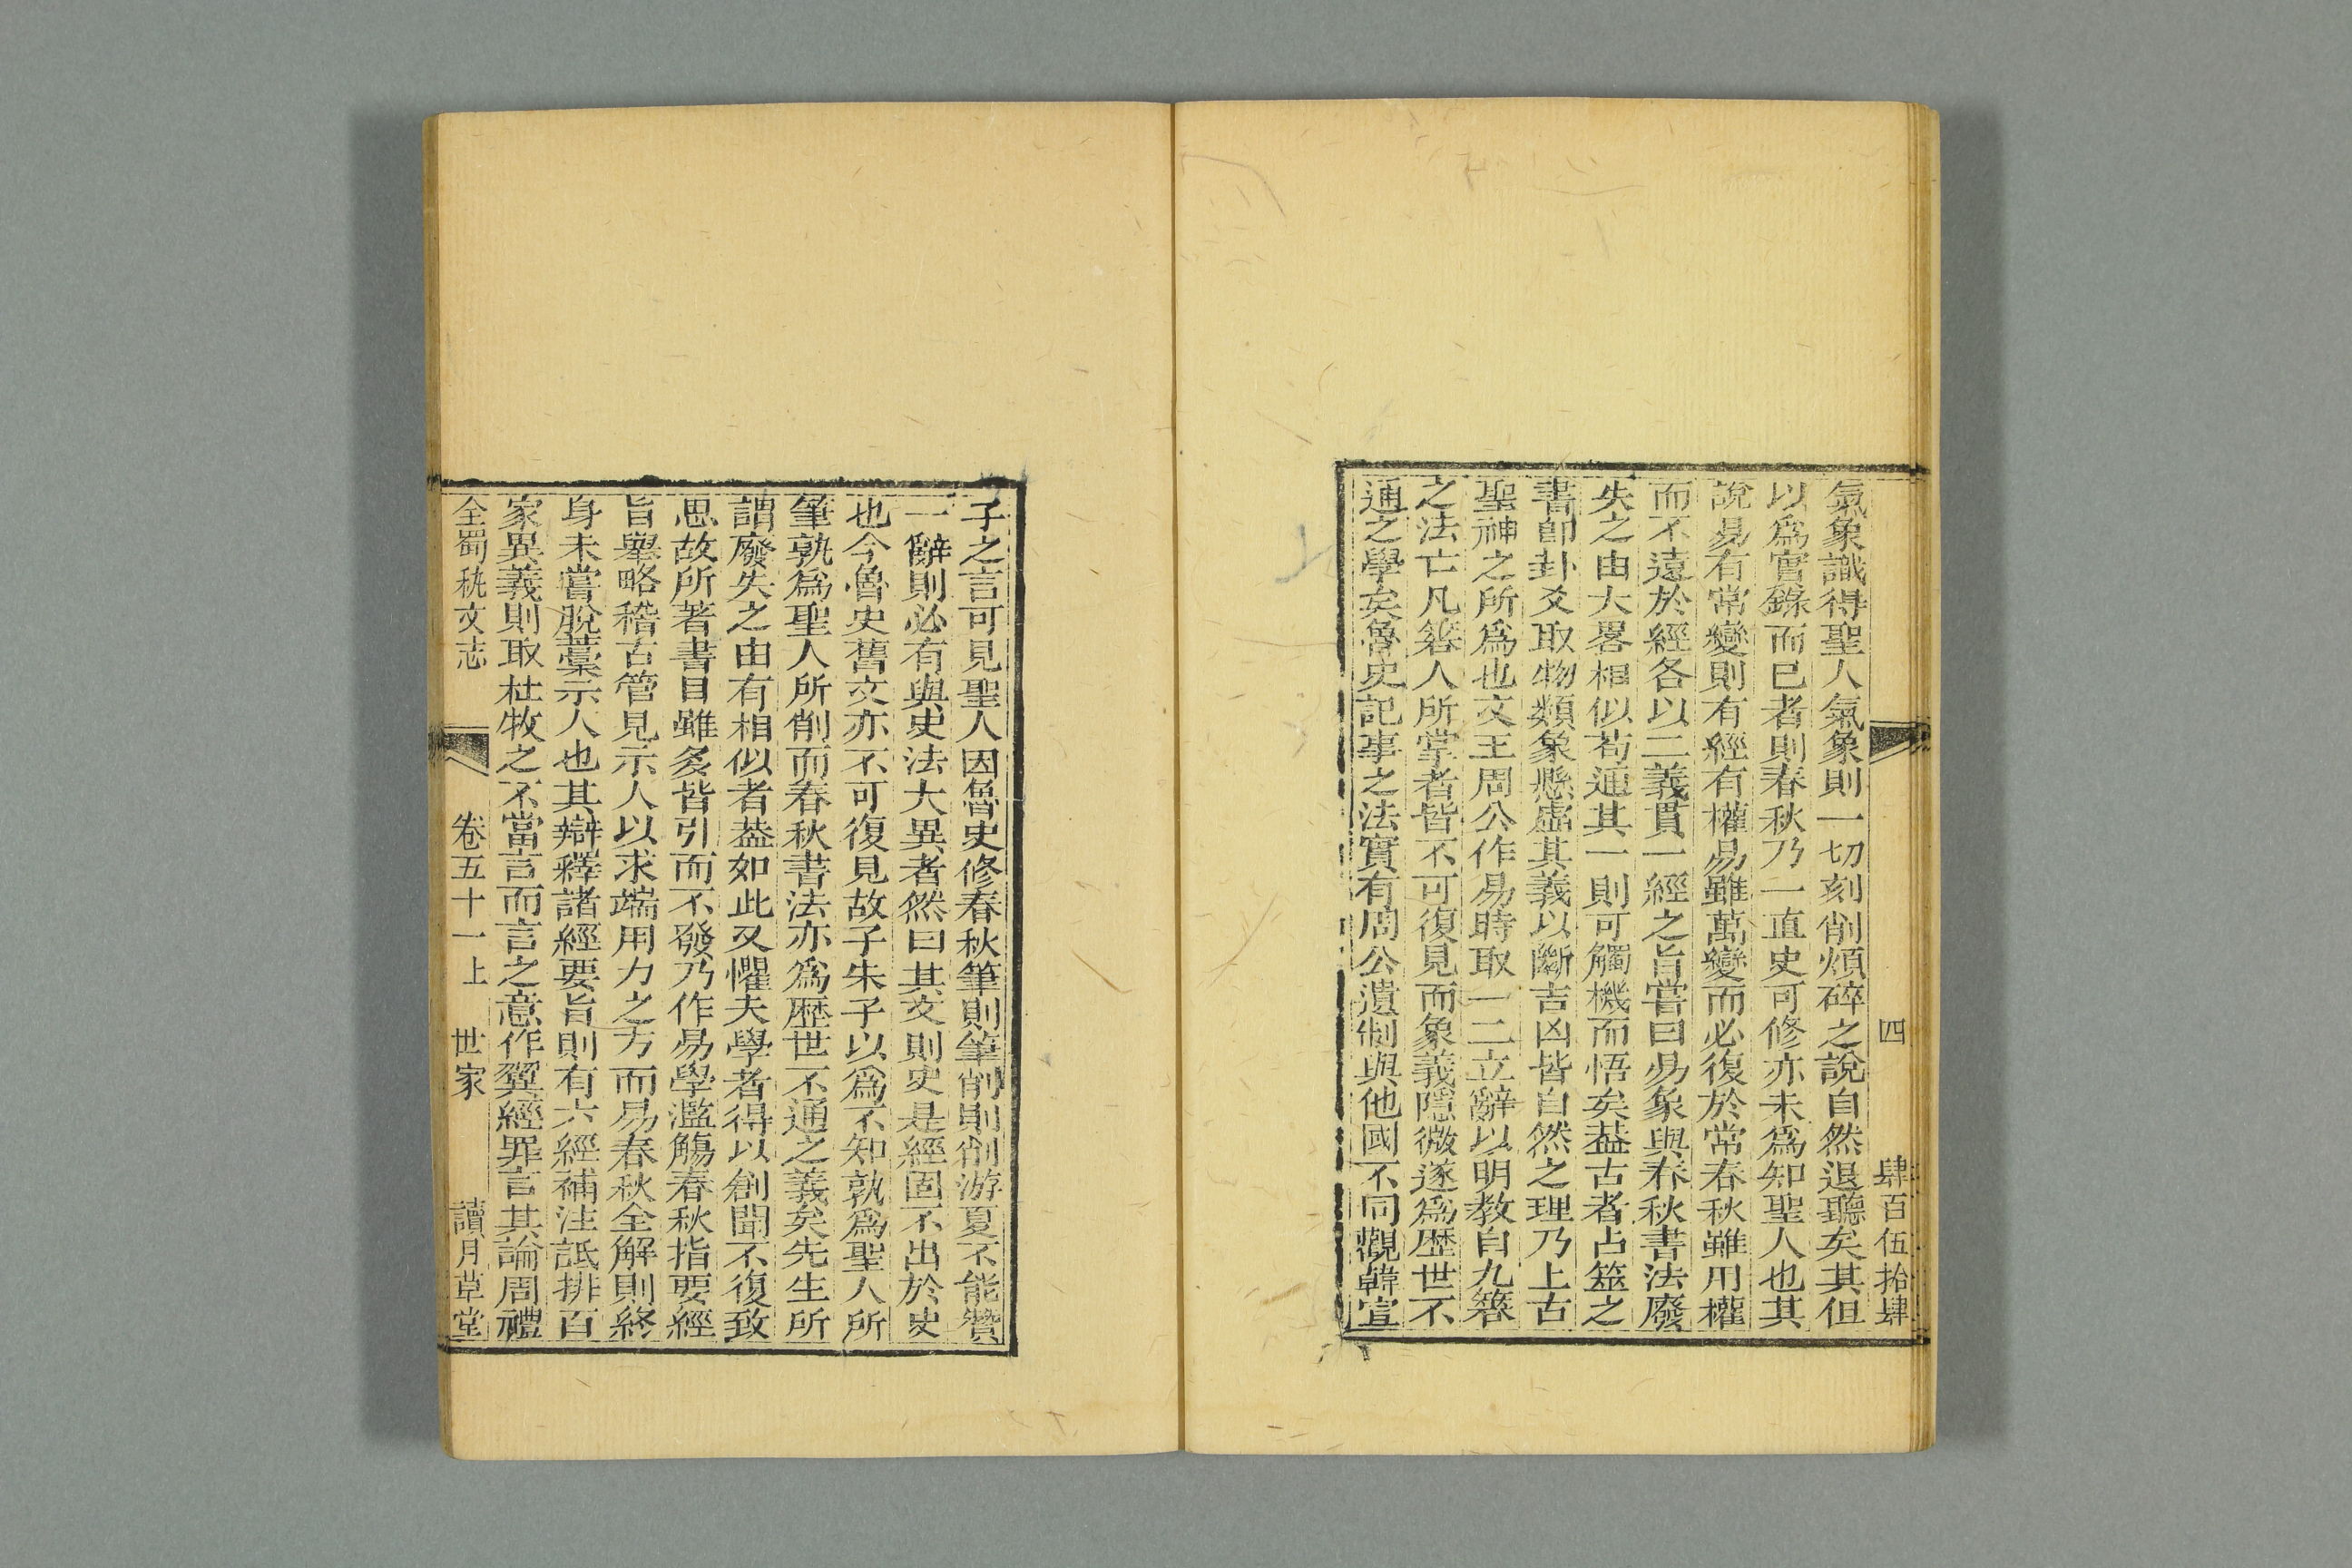 四　肆百伍拾肆
氣象識得聖人氣象則一切刻削煩碎之說自然退聽矣其但
以爲實錄而已者則春秋乃一直史可修亦未爲知聖人也其
說易有常變則有經有權易雖萬變而必復於常春秋雖用權
而不遠於經各以二義貫一經之旨嘗曰易象與春秋書法廢
失之由大畧相似苟通其一則可觸機而悟矣葢古者占筮之
書卽卦爻取物類象懸虛其義以斷吉凶皆自然之理乃上古
聖神之所爲也文王周公作易時取一二立辭以明教自九簭
之法亡凡簭人所掌者皆不可復見而象義隱微遂爲歷世不
通之學矣魯史記事之法實有周公遺制與他國不同觀韓宣
子之言可見聖人因魯史修春秋筆則筆削則削游夏不能贊
一辭則必有與史法大異者然曰其文則史是經固不出於史
也今魯史舊文亦不可復見故子朱子以爲不知孰爲聖人所
筆孰爲聖人所削而春秋書法亦爲歷世不通之義矣先生所
謂廢失之由有相似者葢如此又懼夫學者得以創聞不復致
思故所著書目雖多皆引而不發乃作易學濫觴春秋指要經
旨舉略稽古管見示人以求端用力之方而易春秋全解則終
身未嘗脫藁示人也其辯釋諸經要旨則有六經補注詆排百
家異義則取杜牧之不當言而言之意作翼經罪言其論周禮
全蜀秇文志　卷五十一上　世家　讀月草堂